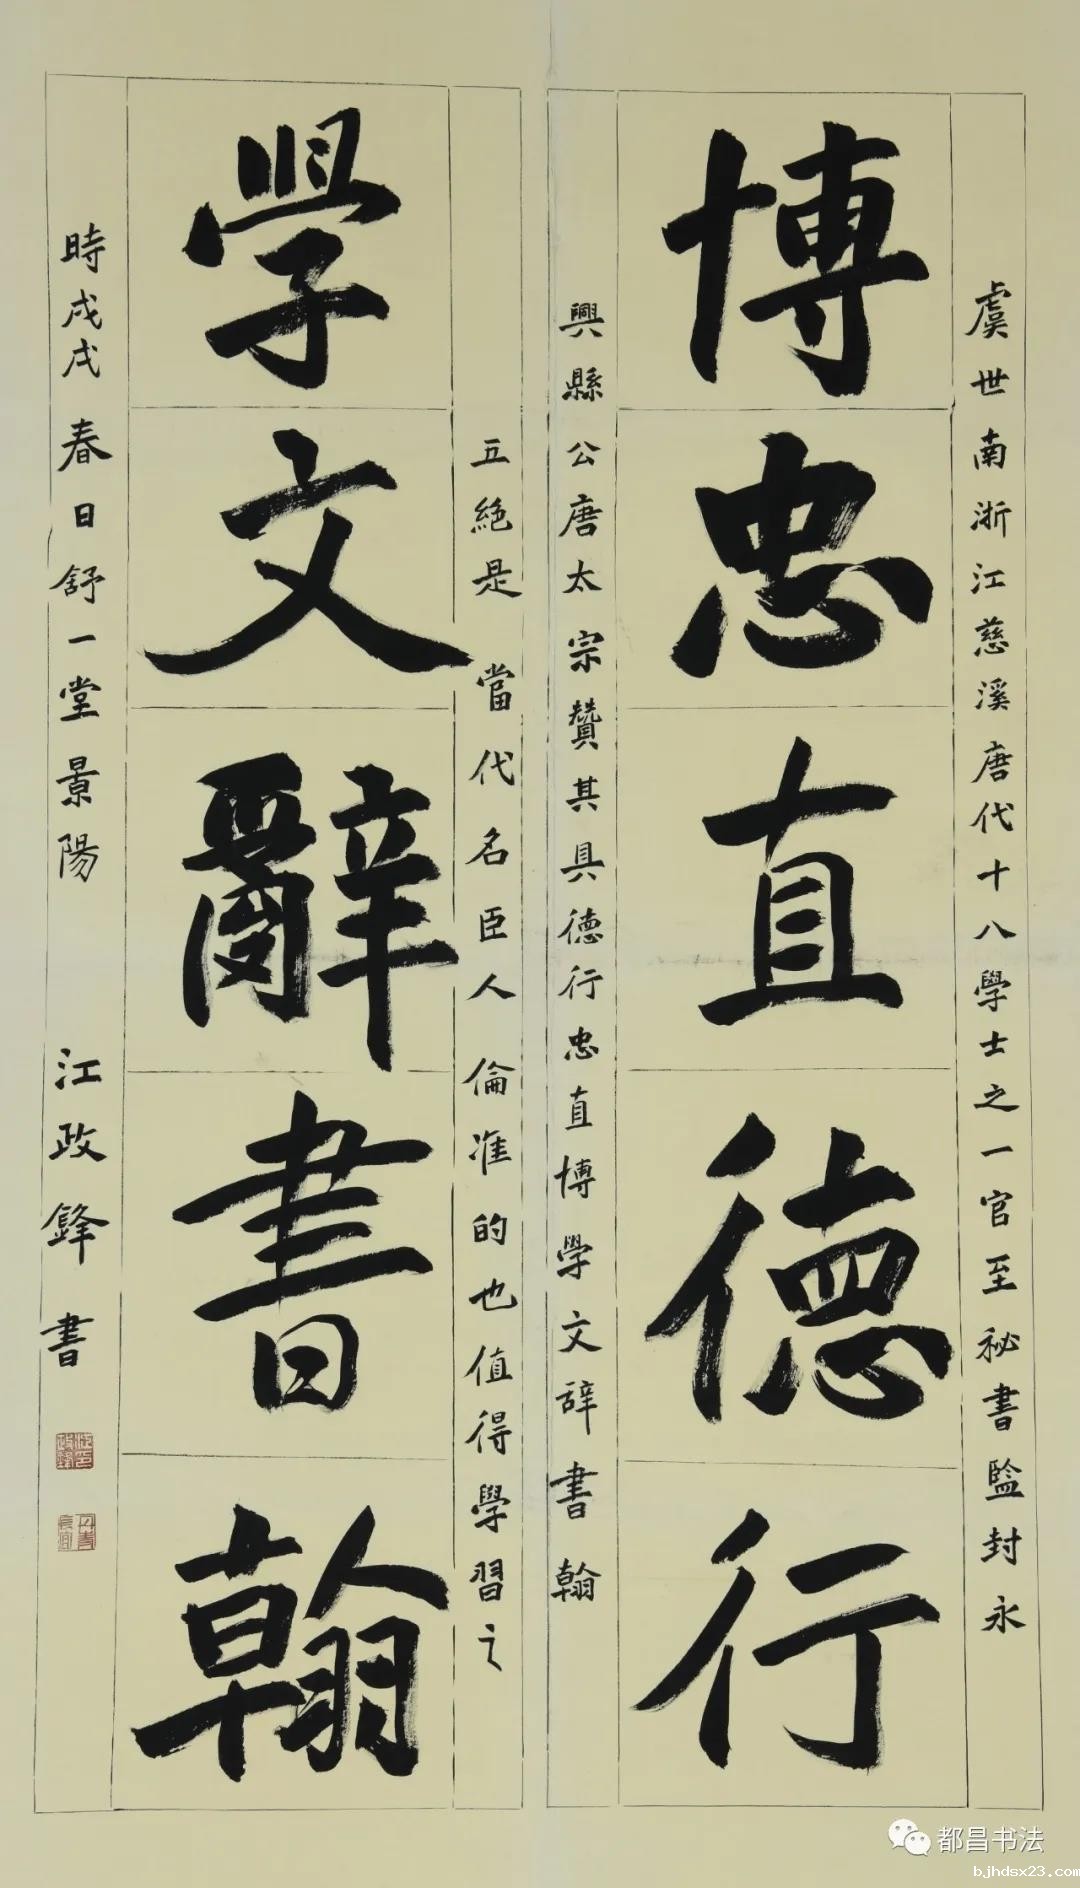 博忠直德行
學文辭書翰
虞世南浙江慈溪唐代十八學士之一官至祕書監封永
興縣公唐太宗贊其具德行忠直博學文辞書翰
五絕是當代名臣人倫准的也值得學習之
時戊戌春日舒一堂景陽
江政鋒書
都昌书法
bjhdsx23.com